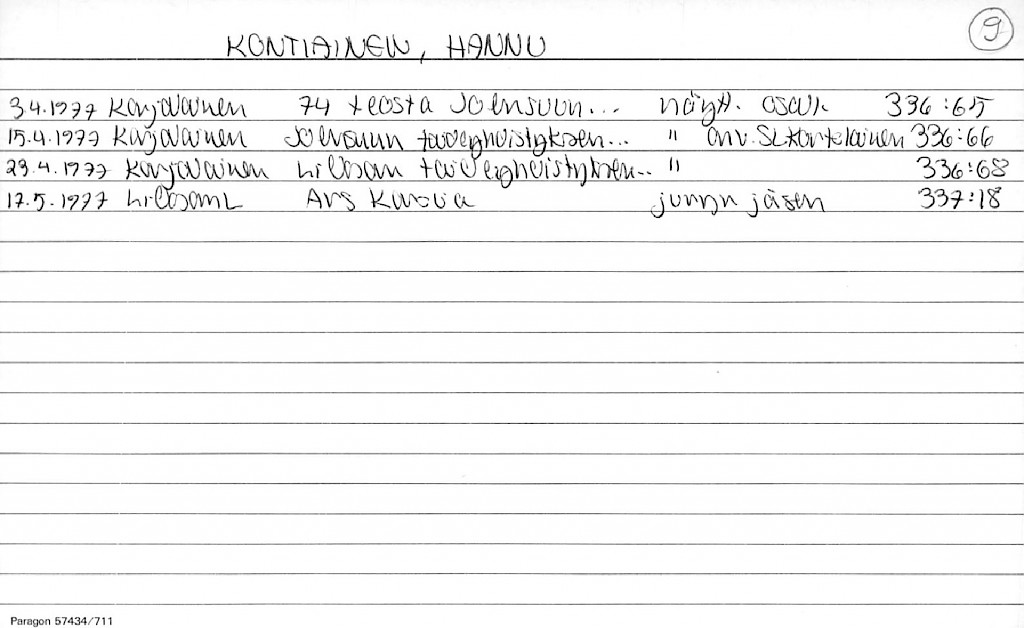 9
KONTIAINEN, HANNU
3.4.1977 Karjalainen 74 teosta Joensuun... näytt. osall. 336:65
15.4.1977 Karjalainen Joensuun taideyhdistyksen... " arv. SLKortelainen 336:66
29.4.1977 Karjalainen Lieksan taideyhdistyksen.. " 336:68
17.5.1977 LieksanL Ars Karelia juryn jäsen 337:18
Paragon 57434/711